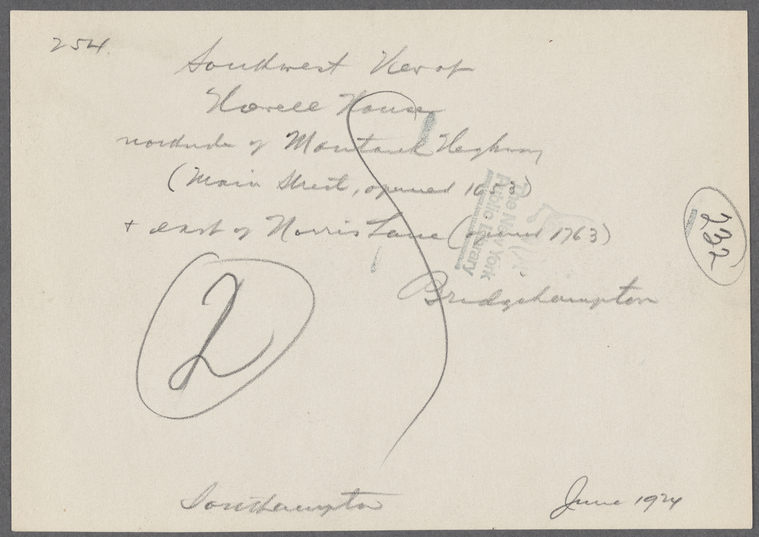 254.
Southwest View of
Howell House
northside of Montauk Highway
(Main Street, opened
+ east of Norris Lane (opened 1763)
The New York
Public Library
232
Bridgehampton
2
Southampton
June 1924